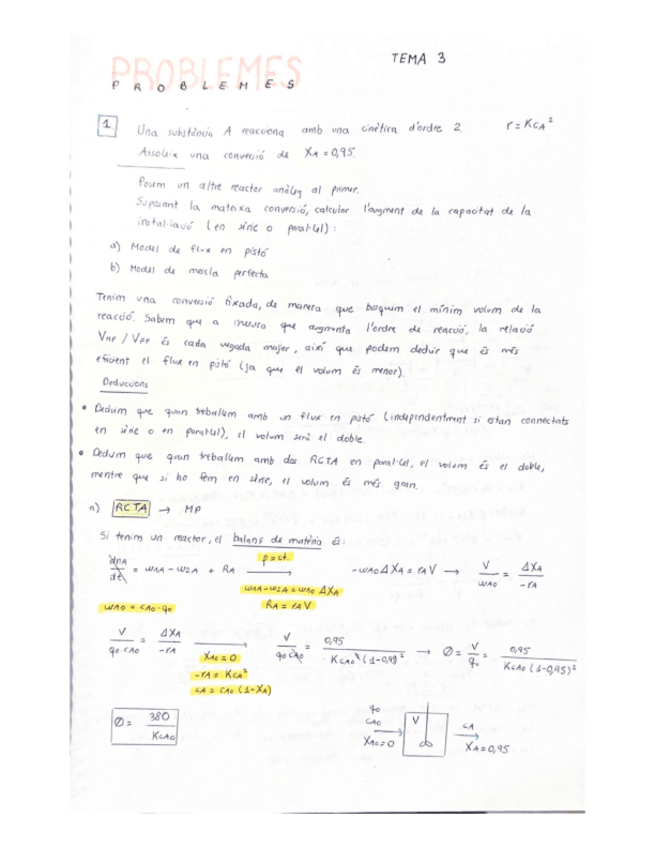 TEMA 3
PROBLEMES
PROBLEMES
1 Una substància A reacciona amb una cinètica d'ordre 2. r = KCA²
Assoleix una conversió de XA = 0,95.
Posem un altre reactor anàleg al primer.
Suposant la mateixa conversió, calcular l'augment de la capacitat de la
instal·lació (en sèrie o paral·lel):
a) Model de flux en pistó
b) Model de mescla perfecta
Tenim una conversió fixada, de manera que busquim el mínim volum de la
reacció. Sabem que a mesura que augmenta l'ordre de reacció, la relació
VMP / VFP és cada vegada major, així que podem deduir que és més
eficient el flux en pistó (ja que el volum és menor).
Deduccions
• Deduïm que quan treballem amb un flux en pistó (independentment si estan connectats
en sèrie o en paral·lel), el volum serà el doble.
• Deduïm que quan treballem amb dos RCTA en paral·lel, el volum és el doble,
mentre que si ho fem en sèrie, el volum és més gran.
a) RCTA → MP
Si tenim un reactor, el balanç de matèria és:
dnA/dt = WA1 - WA2 + RA → ρ = ct. -WA0 ΔXA = rA V → V/WA0 = ΔXA/-rA
WA1 - WA2 = WA0 ΔXA
WA0 = CA0 · q0 RA = rA V
V/q0·CA0 = ΔXA/-rA → V/q0 CA0 = 0,95/KCA0²(1-0,95)² → Ø = V/q0 = 0,95/KCA0(1-0,95)²
XA0 = 0
-rA = KCA²
CA = CA0 (1-XA)
Ø = 380/KCA0
q0
CA0
XA0 = 0
V
CA
XA = 0,95